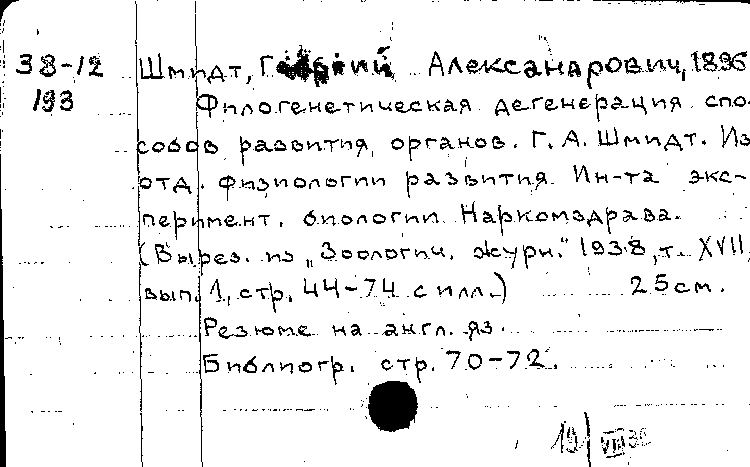 38-12 Шмидт, Георгий Александрович, 1896
193 Филогенетическая дегенерация спо-
собов развития органов. Г. А. Шмидт. Из
отд. физиологии развития Ин-та экс-
перимент. биологии Наркомздрава.
(Вырез. из „Зоологич. журн." 1938, т. XVII,
вып. 1, стр. 44-74 с илл.) 25 см.
Резюме на англ. яз.
Библиогр. стр. 70-72.
19 VIII 38